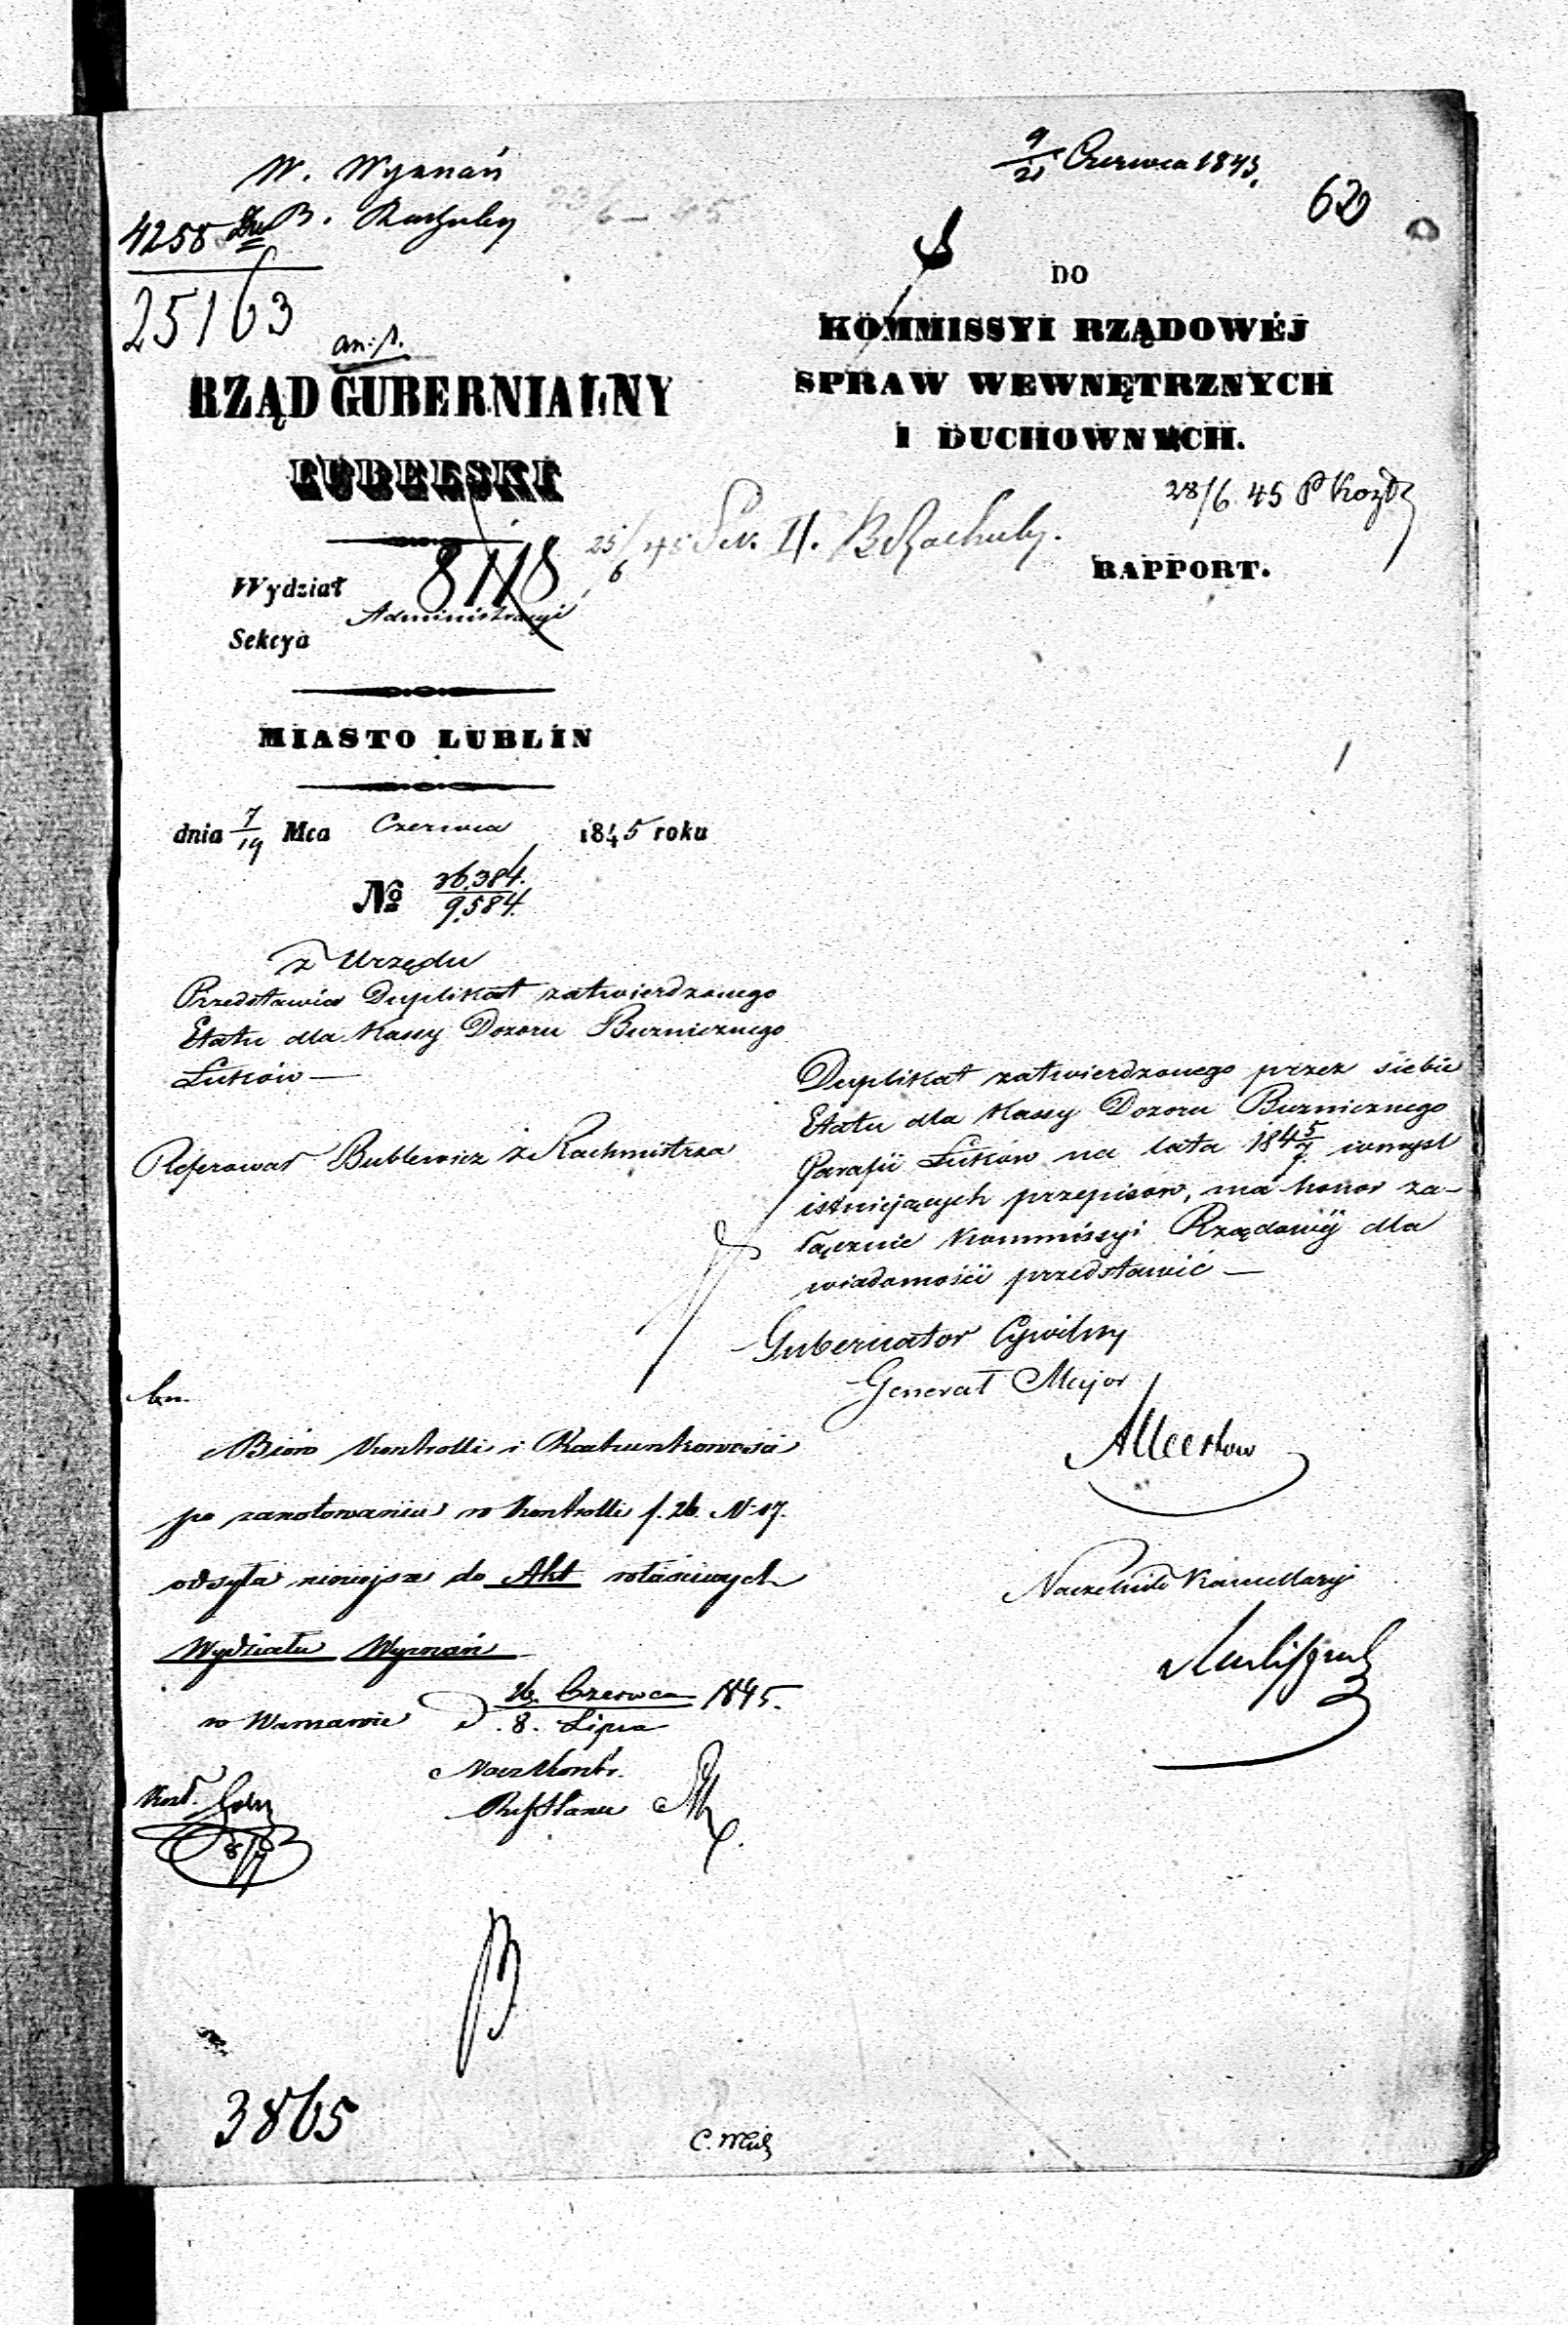 W. Wyznań
4258 B.
25163
9/21 Czerwca 1845.
62
RZĄD GUBERNIALNY
LUBELSKI
8118
Wydział Administracyi
Sekcya
MIASTO LUBLIN
dnia 7/19 Mca Czerwca 1845 roku
№ 36.384./9.584.
z Urzędu
Przedstawia Duplikat zatwierdzonego
Etatu dla Kassy Dozoru Bużnicznego
Łuków —
Referował Bublewicz z Rachmistrza
DO
KOMMISSYI RZĄDOWÉJ
SPRAW WEWNĘTRZNYCH
I DUCHOWNYCH.
28/6 45
25/6 45 II.
RAPPORT.
Duplikat zatwierdzonego przez siebie
Etatu dla Kassy Dozoru Bużnicznego
Parafii Łuków na lata 1845/7. wmysl
istniejących przepisow, ma honor za-
łącznie Kommissyi Rządowéj dla
wiadomości przedstawić —
Gubernator Cywilny
Generał Major
Naczelnik Kancellaryi
Bióro Kontrolli i Rachunkowości
po zanotowaniu w Kontrolli f. 26. N. 17.
odsyła niniejsze do Akt właściwych
Wydziału Wyznań
w Warszawie d. 26. Czerwca/8. Lipca 1845.
Nacz Kontr.
3865